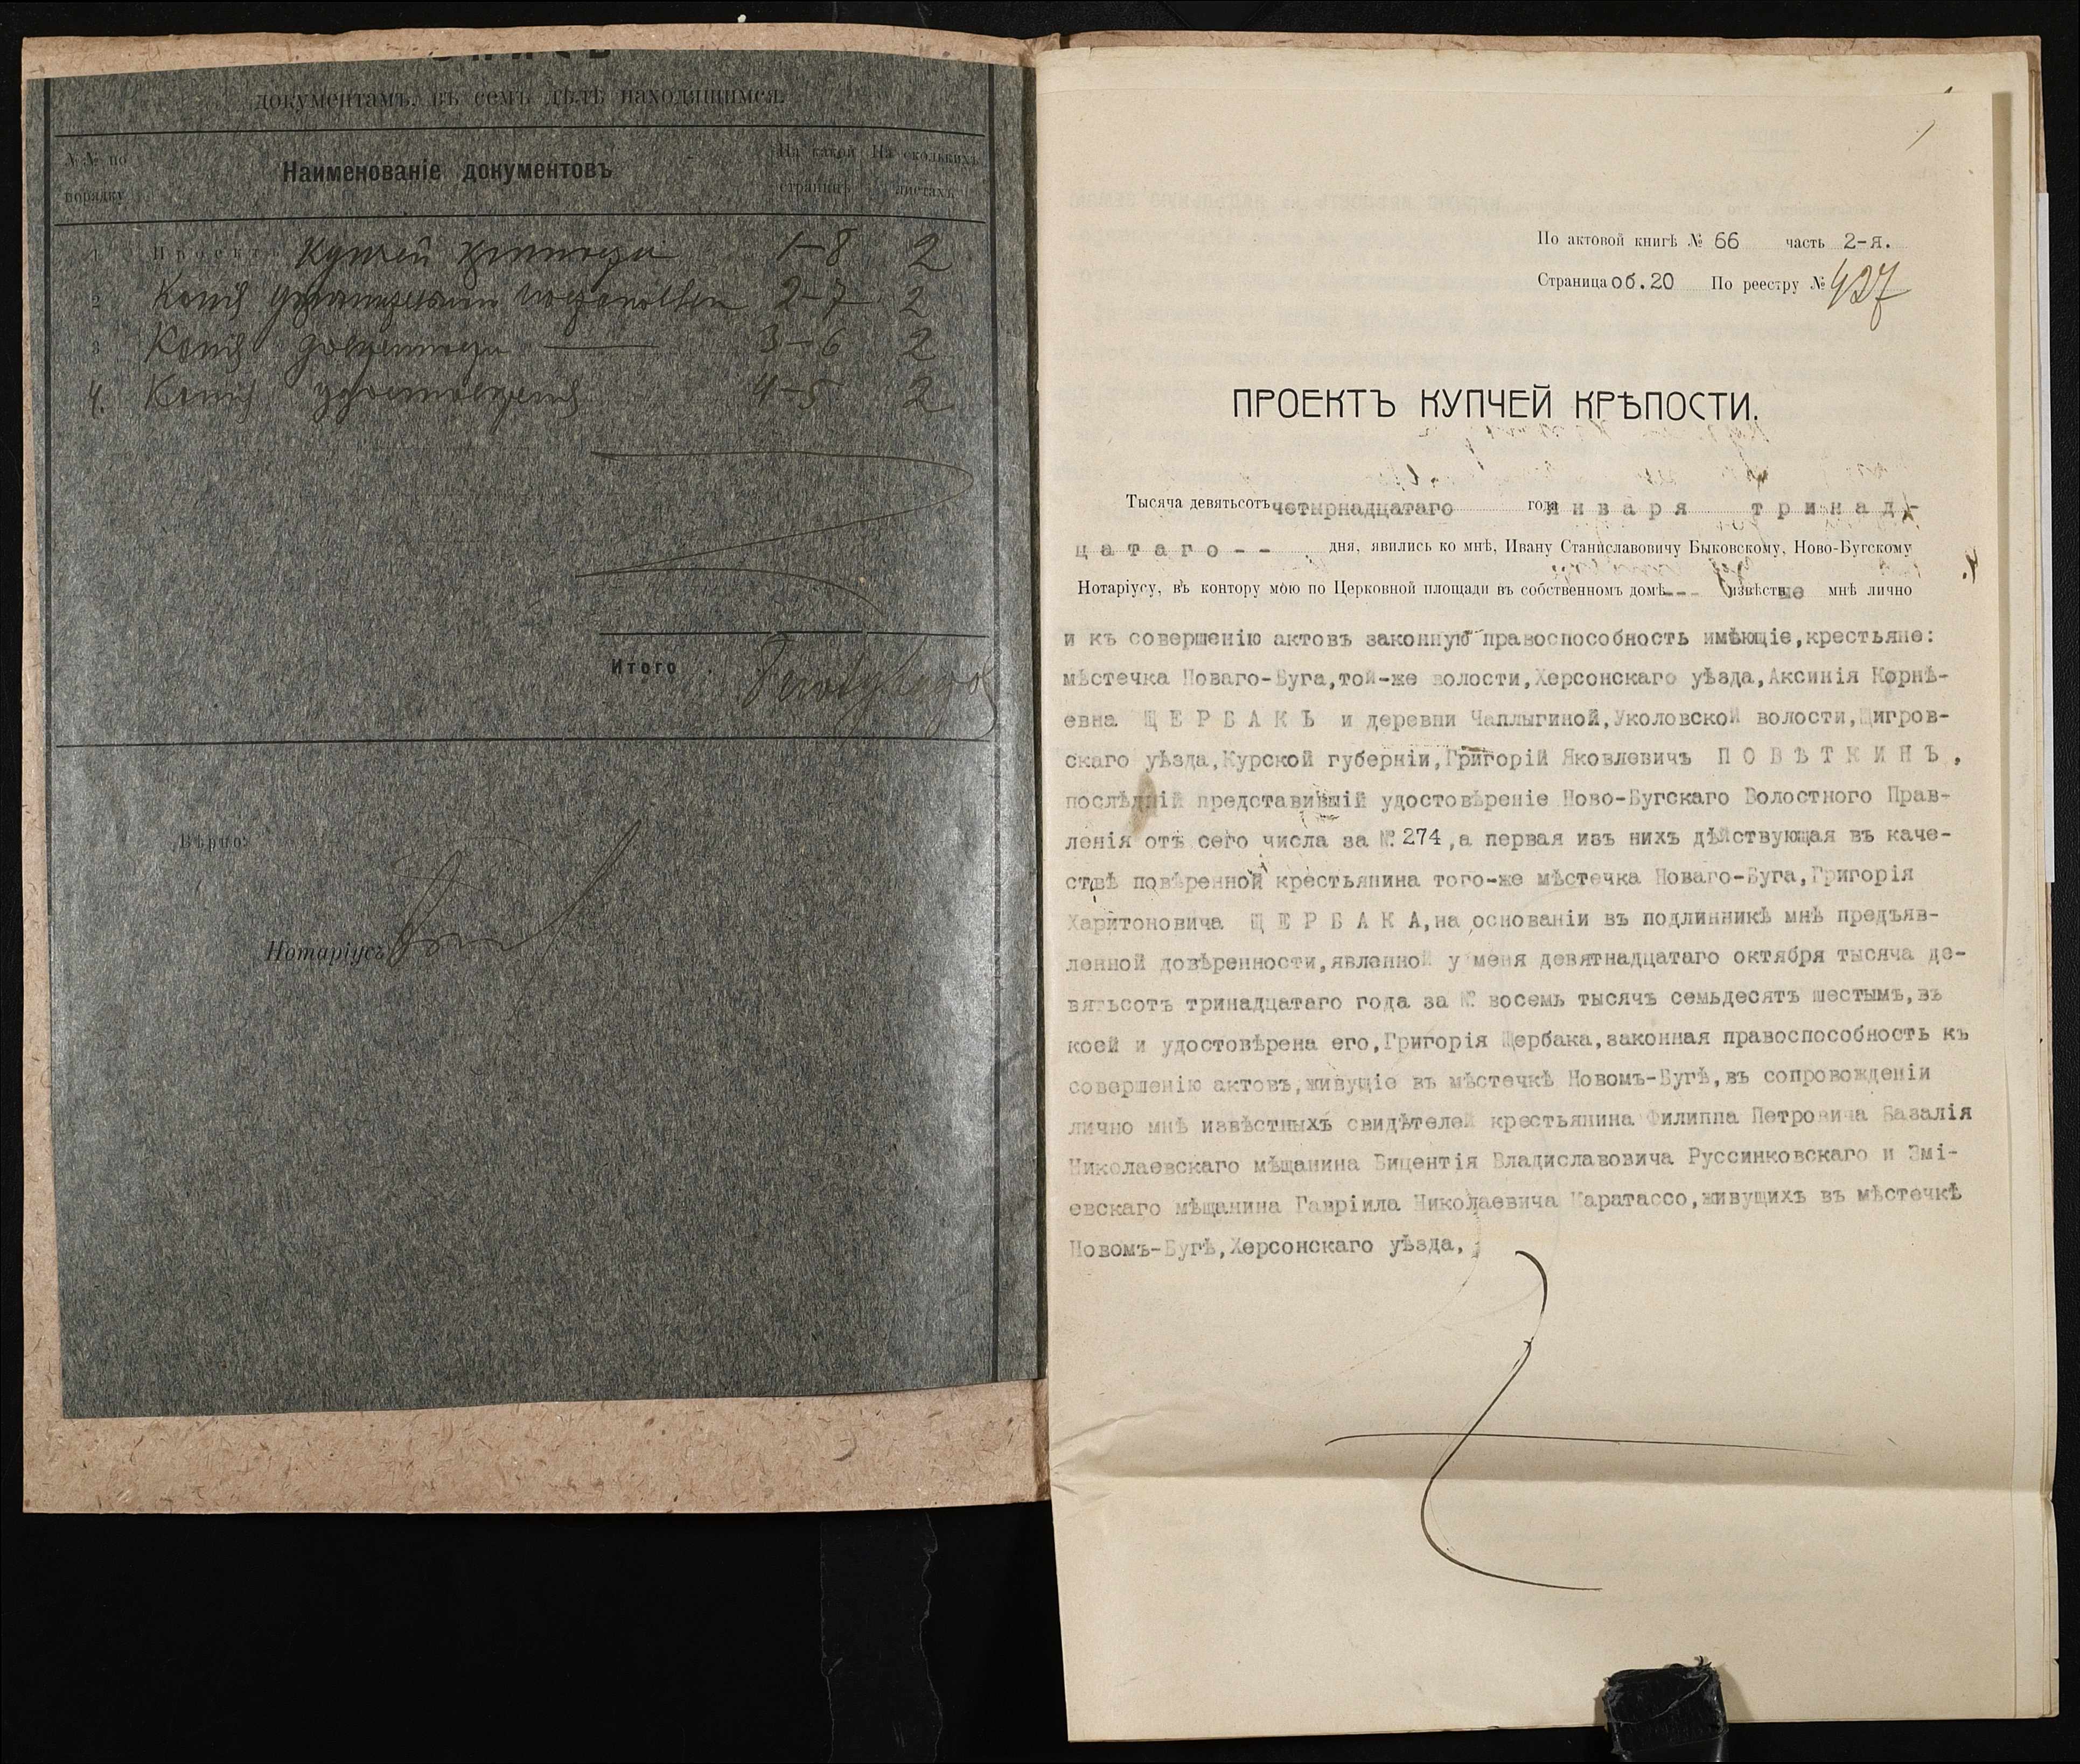 документамъ, въ семъ дѣлѣ находящимся.
№№ по порядку
Наименованіе документовъ
На какой страницѣ
На сколькихъ листахъ
1 Проектъ Купчей крѣпости 1-8 2
2 Копія 2-7 2
3 Копія довѣренности 3-6 2
4. Копія удостовѣренія 4-5 2
Итого
Вѣрно:
Нотаріусъ
1
По актовой книгѣ № 66 часть 2-я.
Страница об.20 По реестру № 427
ПРОЕКТЪ КУПЧЕЙ КРѢПОСТИ.
Тысяча девятьсотъ четырнадцатаго года января тринад-
цатаго-- дня, явились ко мнѣ, Ивану Станиславовичу Быковскому, Ново-Бугскому
Нотаріусу, въ контору мою по Церковной площади въ собственномъ домѣ--- извѣстные мнѣ лично
и къ совершенію актовъ законную правоспособность имѣющіе,крестьяне:
мѣстечка Новаго-Буга,той-же волости,Херсонскаго уѣзда,Аксинія Корнѣ-
евна ЩЕРБАКЪ и деревни Чаплыгиной,Уколовской волости,Щигров-
скаго уѣзда,Курской губерніи,Григорій Яковлевичъ ПОВѢТКИНЪ,
послѣдній представившій удостовѣреніе Ново-Бугскаго Волостного Прав-
ленія отъ сего числа за № 274,а первая изъ нихъ дѣйствующая въ каче-
ствѣ повѣренной крестьянина того-же мѣстечка Новаго-Буга,Григорія
Харитоновича ЩЕРБАКА,на основаніи въ подлинникѣ мнѣ предъяв-
ленной довѣренности,явленной у меня девятнадцатаго октября тысяча де-
вятьсотъ тринадцатаго года за № восемь тысячъ семьдесятъ шестымъ,въ
коей и удостовѣрена его,Григорія Щербака,законная правоспособность къ
совершенію актовъ,живущіе въ мѣстечкѣ Новомъ-Бугѣ,въ сопровожденіи
лично мнѣ извѣстныхъ свидѣтелей крестьянина Филиппа Петровича Базалія
Николаевскаго мѣщанина Вицентія Владиславовича Руссинковскаго и Змі-
евскаго мѣщанина Гавріила Николаевича Каратассо,живущихъ въ мѣстечкѣ
Новомъ-Бугѣ,Херсонскаго уѣзда,